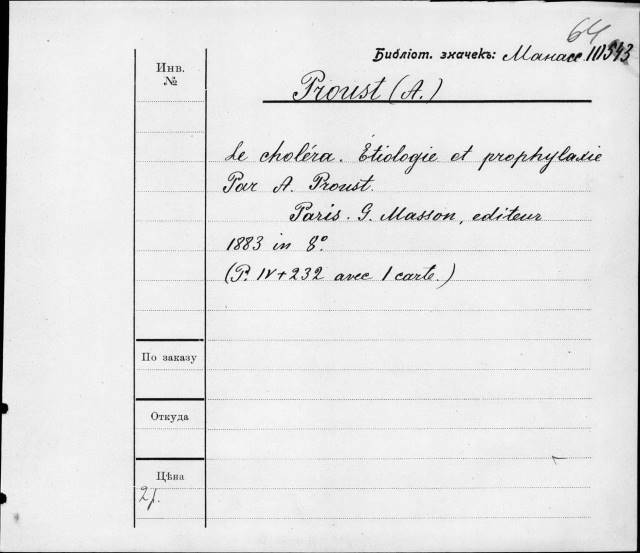 64
Библіот. значекъ: Манасс 111543
Инв.
№
Proust (A.)
Le choléra. Étiologie et prophylaxie
Par A. Proust.
Paris. G. Masson, editeur
1883 in 8°.
(P. IV + 232 avec 1 carte.)
По заказу
Откуда
Цѣна
2р.